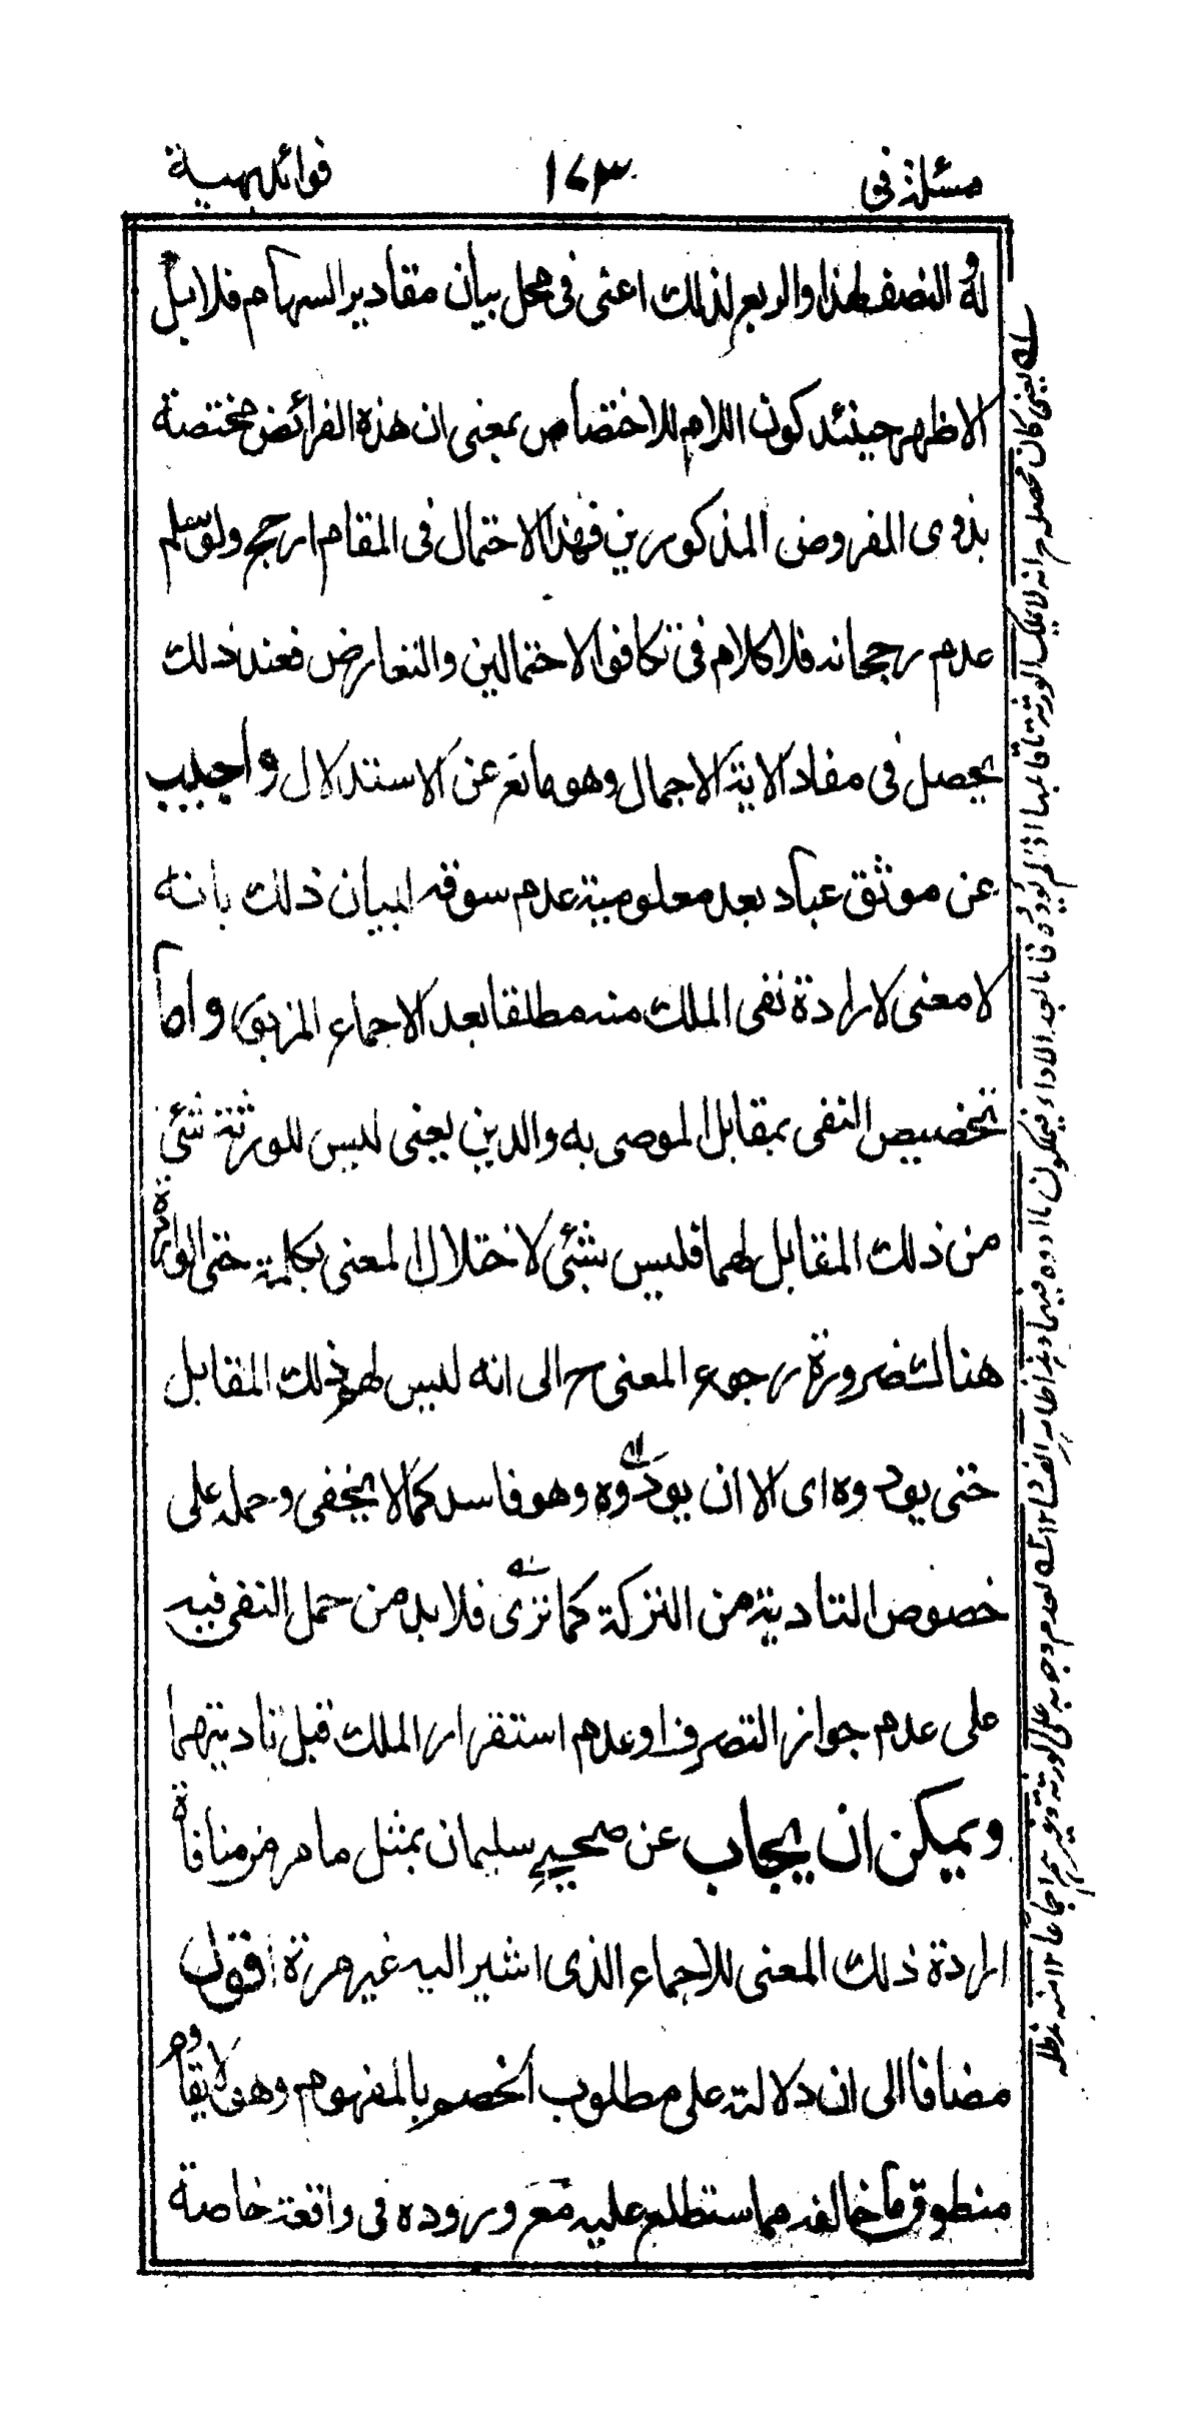 مسئلة فى
١٧٣
فوائد بهية
له النصف لهذا والربع لذلك اعنى فى محل بيان مقادير السهام فلا بل
الاظهر حينئذ كون اللام للاختصاص بمعنى ان هذه الفرائض مختصة
بذوى الفروض المذكورين فهذا الاحتمال فى المقام ارجح ولو سلم
عدم رجحانه فلا كلام فى تكافو الاحتمالين والتعارض فعند ذلك
يحصل فى مفاد الاية الاجمال وهو مانع عن الاستدلال واجيب
عن موثق عباد بعد معلومية عدم سوقه لبيان ذلك بانه
لا معنى لارادة نفى الملك منه مطلقا بعد الاجماع المزبور واما
تخصيص النفى بمقابل الموصى به والدين يعنى ليس للورثة شئى
من ذلك المقابل لهما فليس بشئى لاختلال المعنى بكلمة حتى الواردة
هناك ضرورة رجوع المعنى ح الى انه ليس لهم ذلك المقابل
حتى يودوه اى الا ان يودوه وهو فاسد كما لا يخفى وحمله على
خصوص التادية من التركة كما ترى فلابد من حمل النفى فيه
على عدم جواز التصرف او عدم استقرار الملك قبل تاديتهما
ويمكن ان يجاب عن صحيح سليمان بمثل ما مر من منافاة
ارادة ذلك المعنى للاجماع الذى اشير اليه غير مرة اقول
مضافا الى ان دلالته على مطلوب الخصم بالمفهوم وهو لا يقاوم
منطوق ما خالفه مما ستطلع عليه مع وروده فى واقعة خاصة
له يعنى كان محصله ح انه لا يملك الورثة ما قابلهما اذا لم يودوه فاما بعد الاداء فيملكون ما ادوه فيهما وهذا ظاهر الفساد ١٢ له لعدم وجوبه على الورثة وغيرهم اجماعا ١٢ منه مدظله